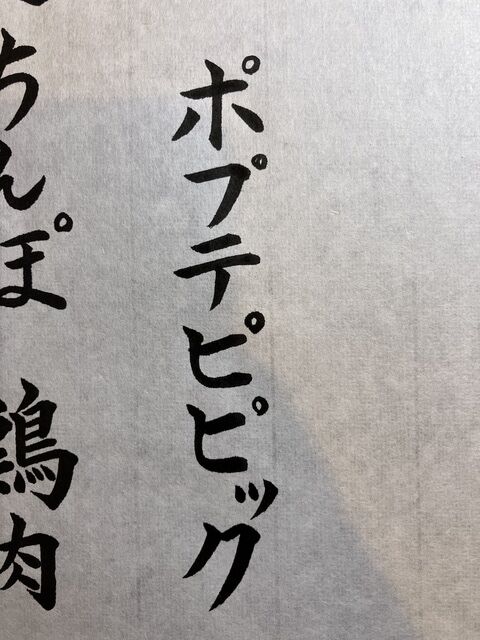 ポプテピピック
ちんぽ 鶏肉